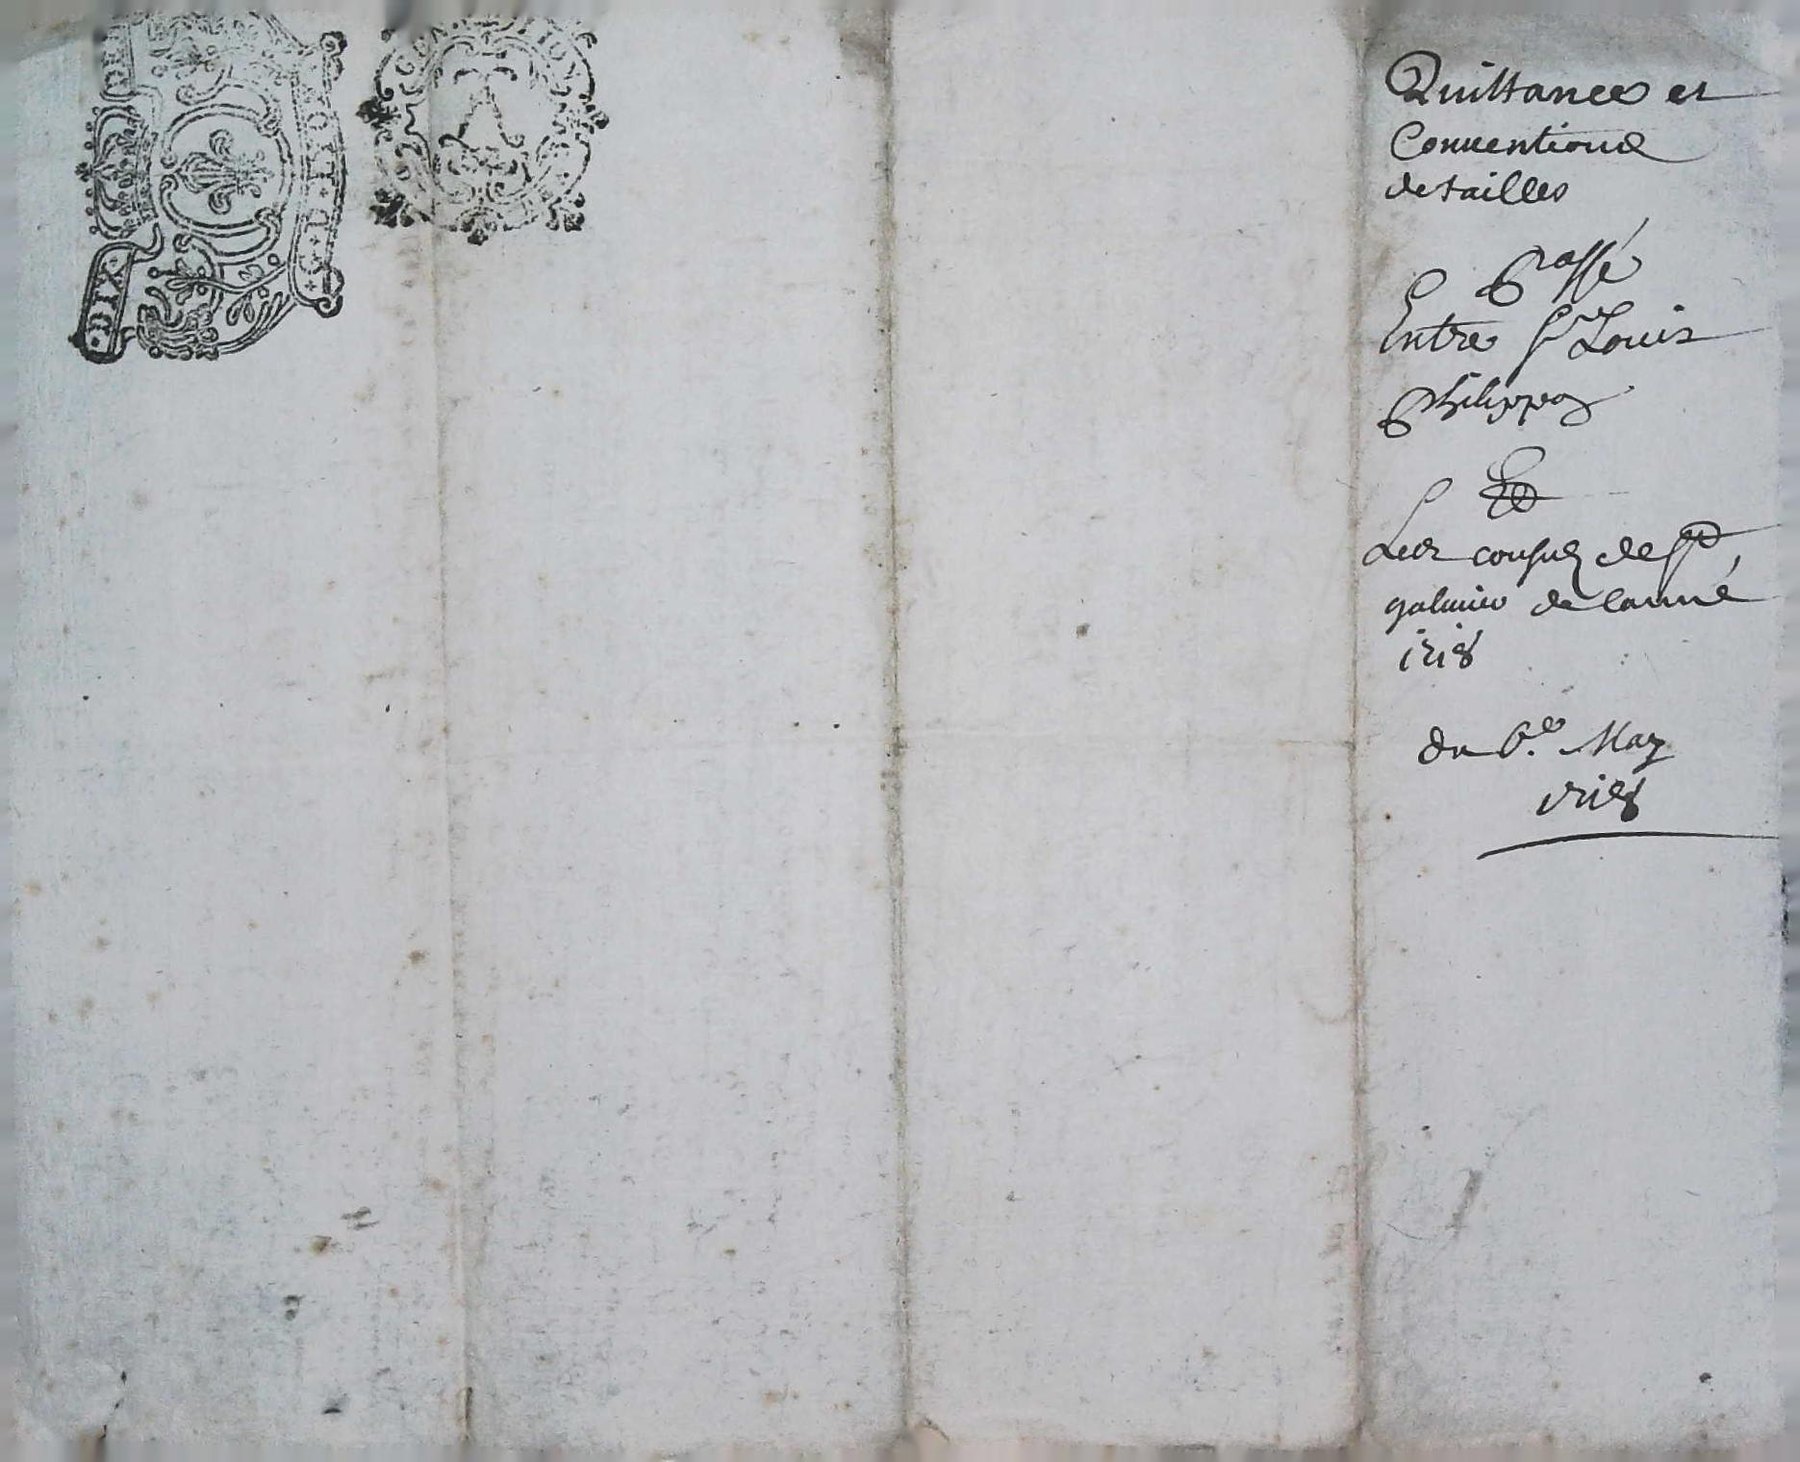 DIX
Quittance et
Conventions
de tailles
Passé
Entre Sr Louis
Philippon
Et
Les consuls de St
galmier de lanné
1718
du 6.e May
1718